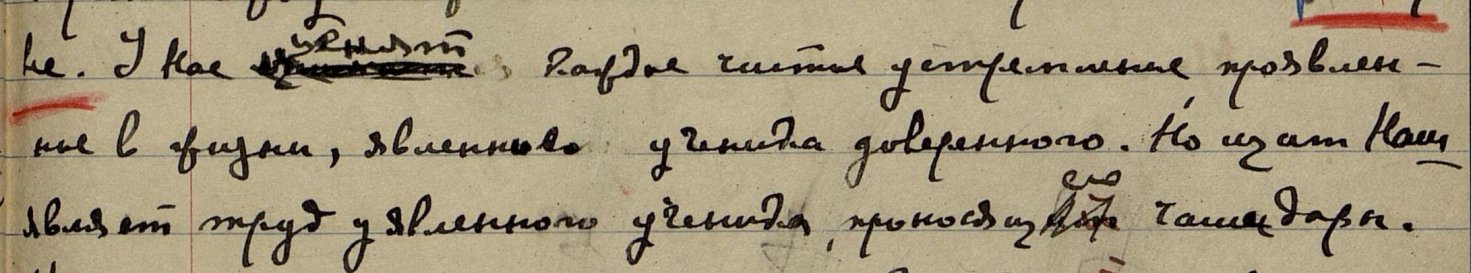 не. У нас ценят каждое чистое устремление проявлен-
ное в жизни, явленного ученика доверенного. Но щит Наш
являет труд уявленного ученика, проносящ его чаши дары.